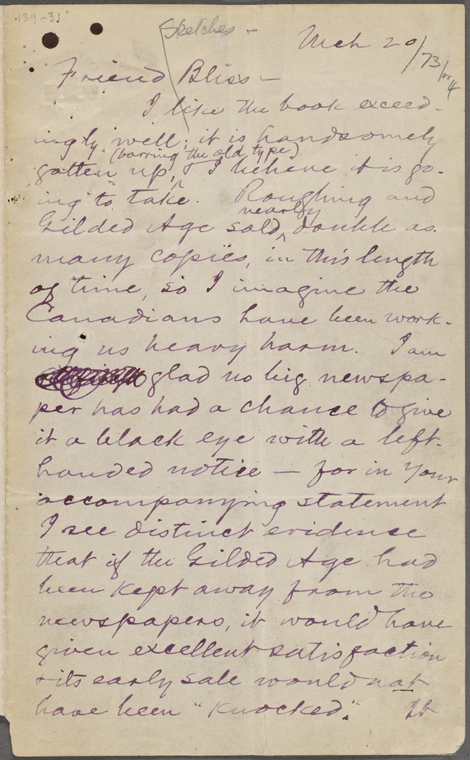 139-31
Sketches —
Mch 20/73 or 4
Friend Bliss —
I like the book exceed-
ingly well; it is handsomely
(barring the old type)
gotten up, & I believe it is go-
ing to take. Roughing and
nearly
Gilded Age sold double as
many copies, in this length
of time, so I imagine the
Canadians have been work-
ing us heavy harm. I am
glad no big newspa-
per has had a chance to give
it a black eye with a left-
handed notice — for in your
accompanying statement
I see distinct evidence
that if the Gilded Age had
been kept away from the
newspapers, it would have
given excellent satisfaction
& its early sale would not
have been "knocked". It